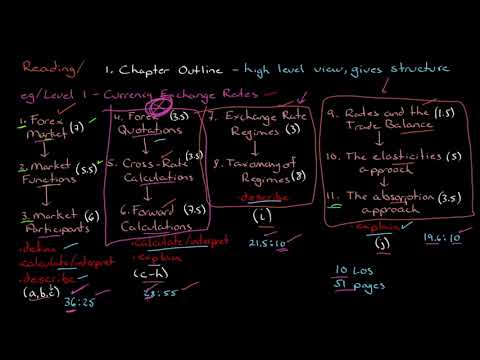 Reading/ 1. Chapter Outline - high level view, gives structure
eg/Level 1 - Currency Exchange Rates
1. Forex Market (7)
2. Market Functions (5.5)
3. Market Participants (6)
• define
• calculate/interpret
• describe
(a,b,c)
36:25
4. Forex (3.5) Quotations
5. Cross-Rate (3.5) Calculations
6. Forward (7.5) Calculations
• calculate/interpret
• explain
(c-h)
:55
7. Exchange Rate Regimes (3)
8. Taxonomy of Regimes (8)
• describe
(i)
21.5:10
9. Rates and the (1.5) Trade Balance
10. The elasticities (5) approach
11. The absorption (3.5) approach
• explain
(j)
19.6:10
10 LOS
51 pages